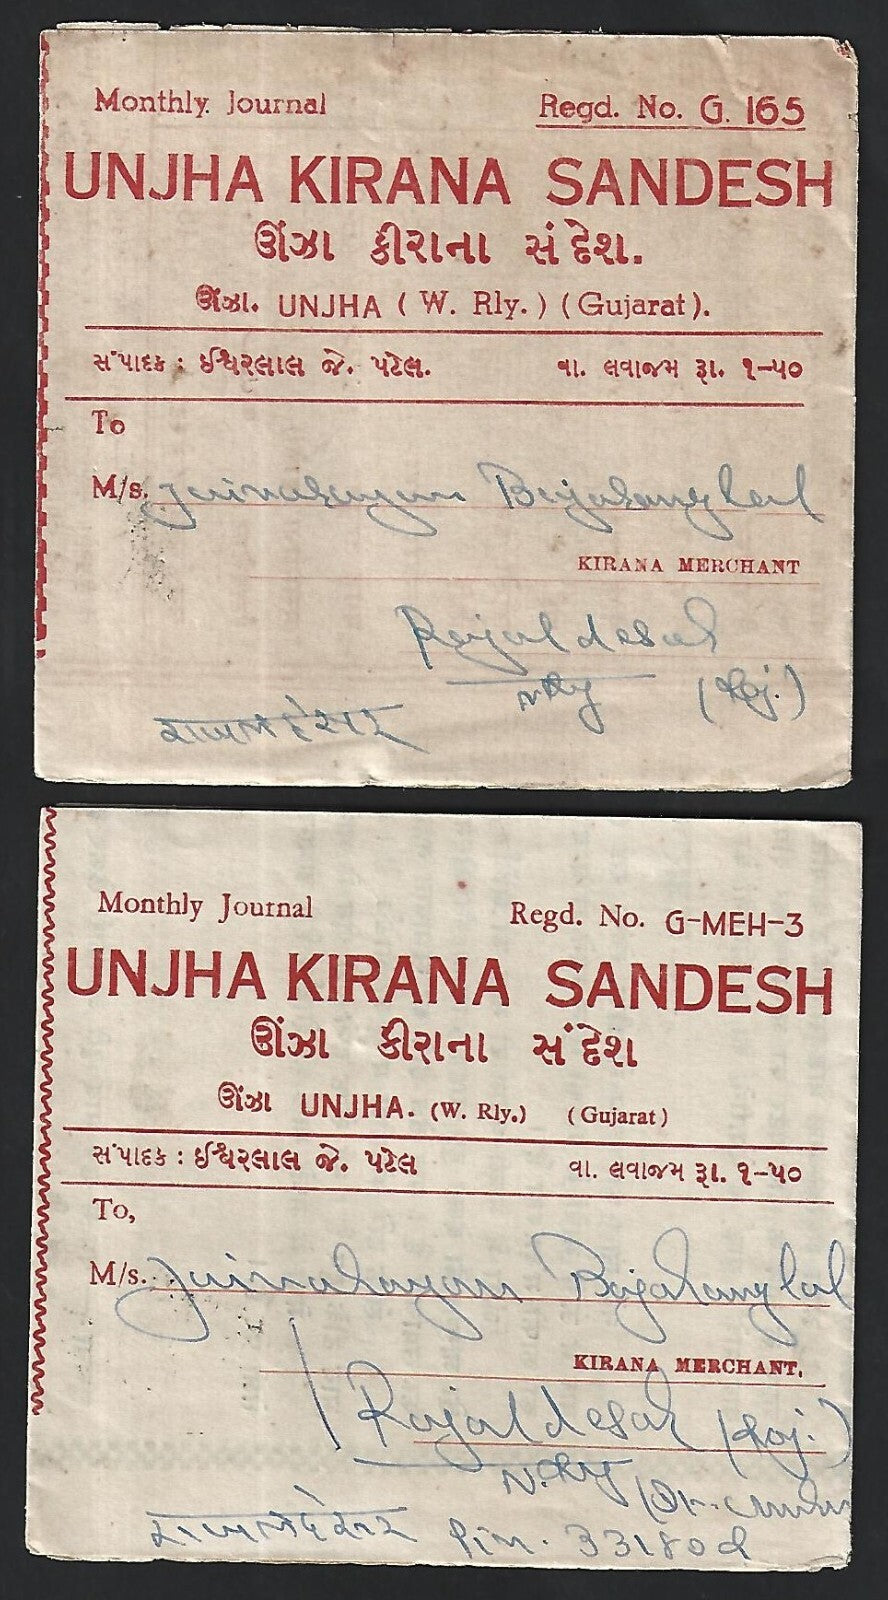 Monthly Journal Regd. No. G. 165
UNJHA KIRANA SANDESH
ઊંઝા કીરાના સંદેશ.
ઊંઝા. UNJHA ( W. Rly. ) ( Gujarat ).
સંપાદક : ઈશ્વરલાલ જે. પટેલ. વા. લવાજમ રૂા. ૧-૫૦
To
M/s. Jainarayan Bajaranglal
KIRANA MERCHANT
Rajaldesar
N.Rly (Raj.)
Monthly Journal Regd. No. G-MEH-3
UNJHA KIRANA SANDESH
ઊંઝા કીરાના સંદેશ
ઊંઝા UNJHA. (W. Rly.) (Gujarat)
સંપાદક : ઈશ્વરલાલ જે. પટેલ વા. લવાજમ રૂા. ૧-૫૦
To,
M/s. Jainarayan Bajaranglal
KIRANA MERCHANT.
Rajaldesar (Raj.)
N.Rly
Pin. 331802